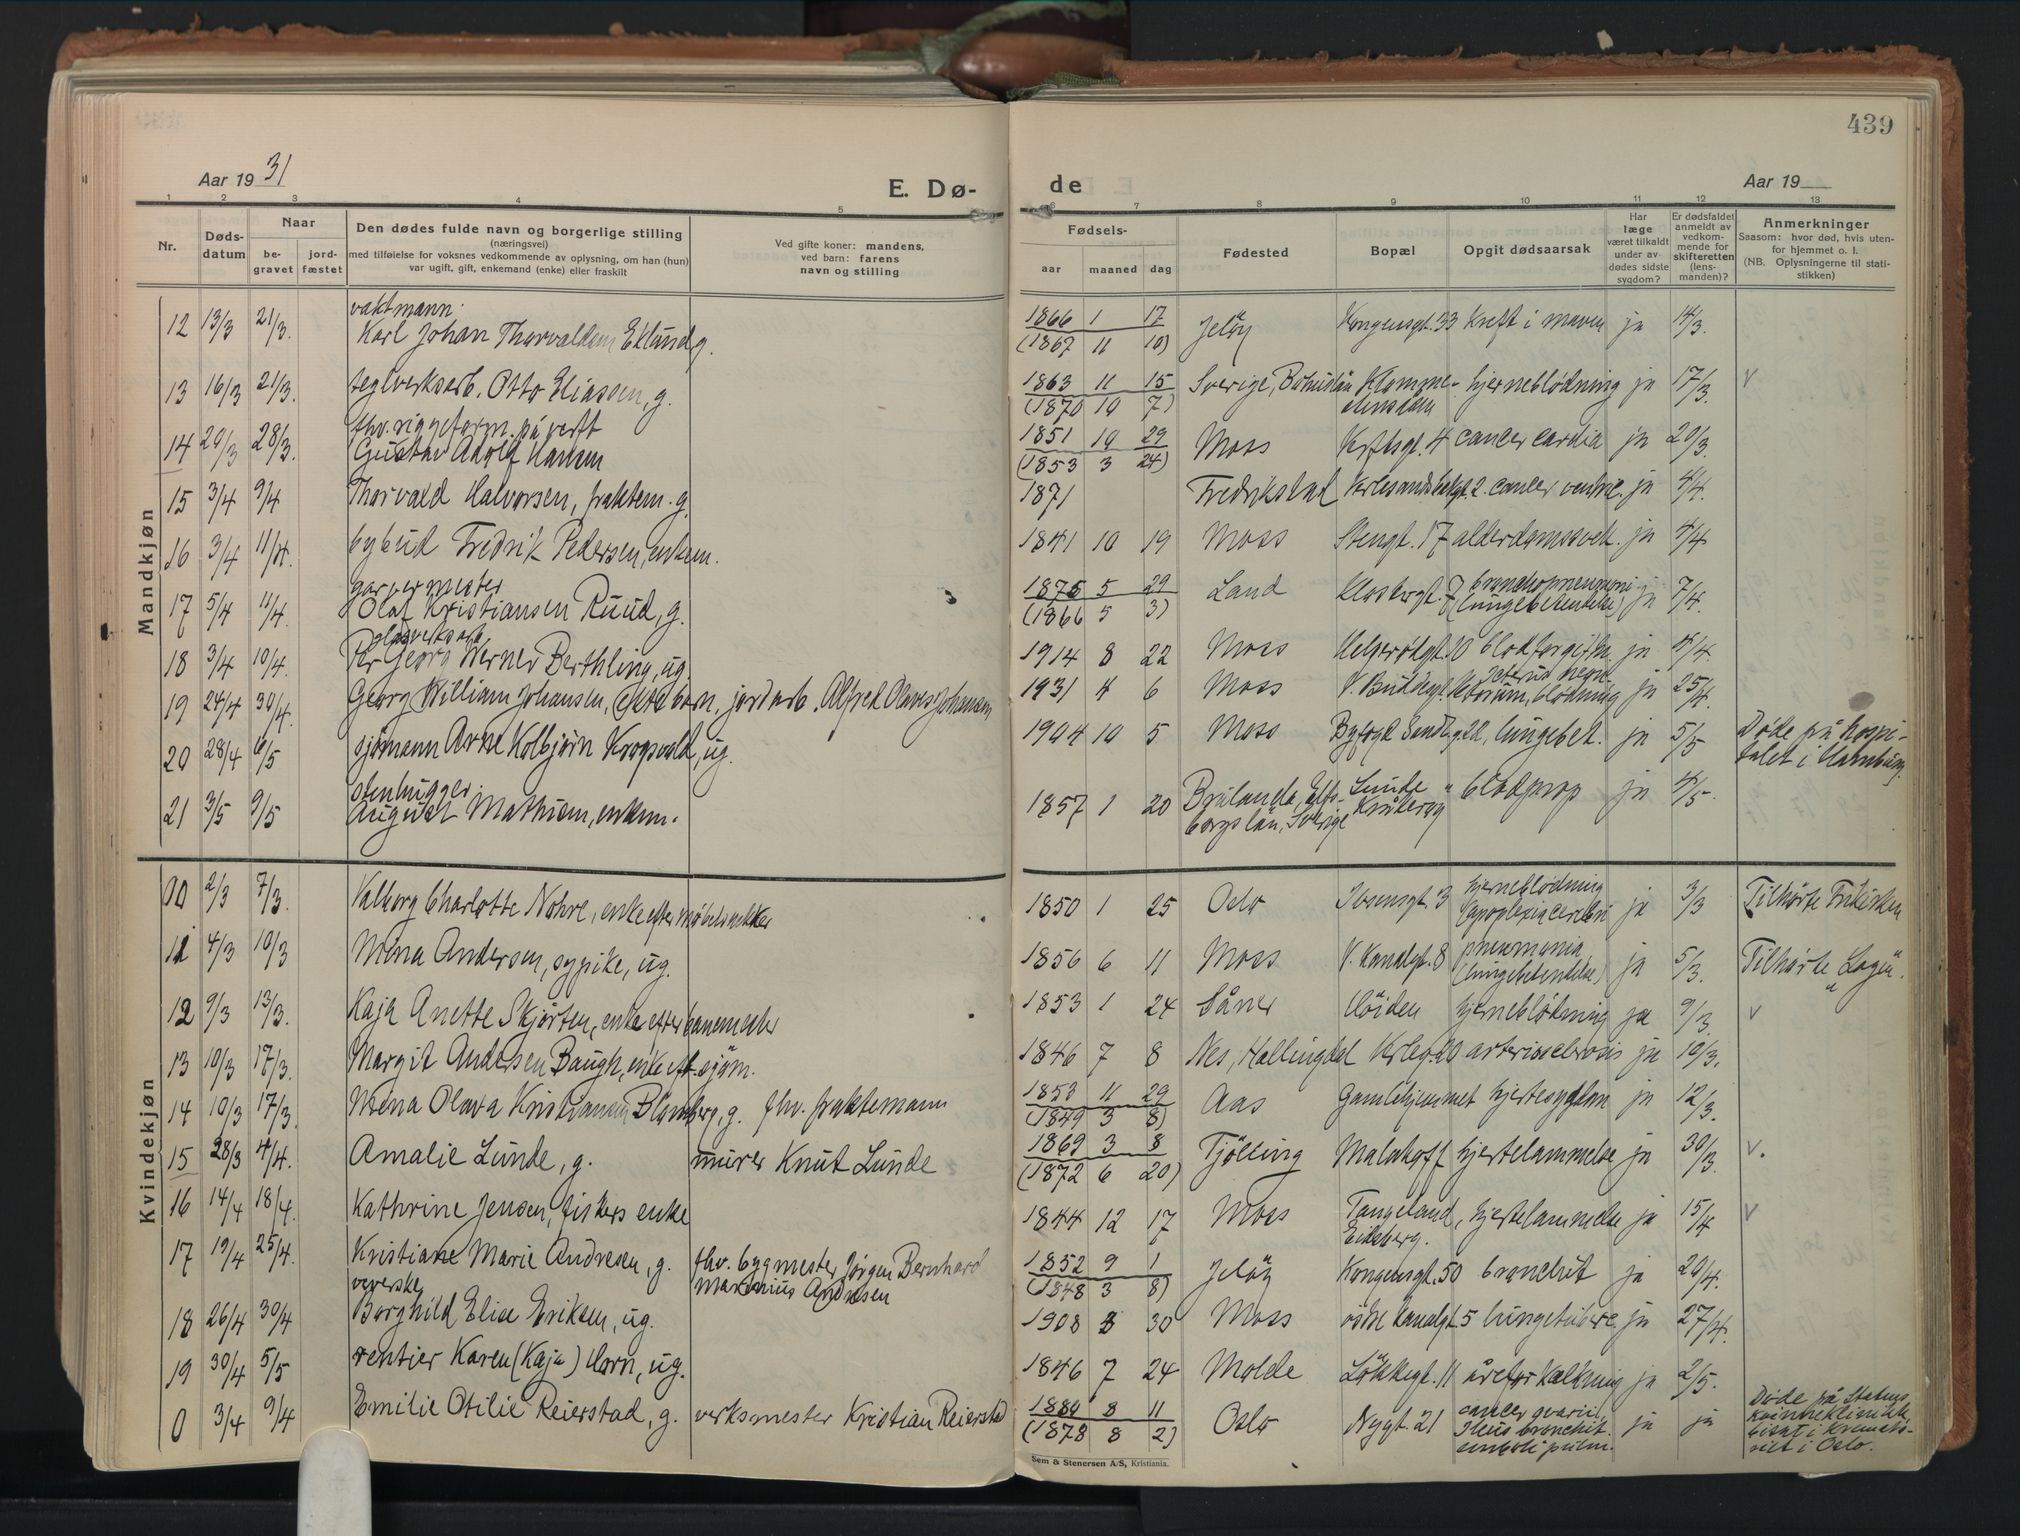 439
Aar 1931
E. Dø-
de
Aar 19
1 2 3 4 5 6 7 8 9 10 11 12 13
Nr.
Døds-
datum
Naar
be-
gravet
jord-
fæstet
Den dødes fulde navn og borgerlige stilling
(næringsvei)
med tilføielse for voksnes vedkommende av oplysning, om han (hun)
var ugift, gift, enkemand (enke) eller fraskilt
Ved gifte koner: mandens,
ved barn: farens
navn og stilling
Fødsels-
aar maaned dag
Fødested
Bopæl
Opgit dødsaarsak
Har
læge
været tilkaldt
under av-
dødes sidste
sygdom?
Er dødsfaldet
anmeldt av
vedkom-
mende for
skifteretten
(lens-
manden)?
Anmerkninger
Saasom: hvor død, hvis uten-
for hjemmet o. l.
(NB. Oplysningerne til stati-
stikken)
Mandkjøn
vaktmann
12 13/3 21/3. Karl Johan Thorvaldsen Eklund g. 1866 1 17 Jeløy Kongensgt. 33 kreft i maven ja 14/3.
(1867 11 10)
13 16/3 21/3. teglverksarb. Otto Eliassen, g. 1863 11 15 Sverige, Bohuslän hjerneblødning ja 17/3. v
(1870 10 7)
thv. riggeform. på verft
14 20/3 28/3. Gustav Adolf Hansen 1851 10 29 Moss Verftsgt. 4 cancer cardia ja 20/3.
(1853 3 24)
15 3/4 9/4 Thorvald Halvorsen, fraktem. g. 1871 Fredrikstad cancer ventric. ja 4/4.
16 3/4 11/4. bybud Fredrik Pedersen, enkem. 1841 10 19 Moss Stengt. 17 alderdomssvek. ja 4/4
garvermester
17 5/4 11/4. Olaf Kristiansen Ruud, g. 1875 5 29 Land 7 bronchopneumoni (lungebetendelse) ja 7/4.
(1866 5 3)
glasverksarb.
18 3/4 10/4. Per Georg Werner Berthling, ug. 1914 8 22 Moss Helgerødgt. 10 blodforgiftn. ja 4/4.
19 24/4 30/4. Georg William Johansen, ekte barn, jordarb. Alfred Olaves Johansen 1931 4 6 Moss V. Buddegt. blødning ja 25/4.
20 28/4 6/5 sjømann Arne Kolbjørn Krogsvold, ug. 1904 10 5 Moss lungebet. ja 5/5 Døde på hospi-
talet i Hamburg.
stenhugger
21 3/5 9/5 August Mathisen, enkem. 1857 1 20 Elfs-
borgslän, Sverige Lunde Kråkerøy blodprop ja 4/5.
Kvindekjøn
10 2/3 7/3. Valborg Charlotte Nohre, enke efter møbelsnekker 1850 1 25 Oslo Ibsensgt. 3 hjerneblödning (apoplexia cerebri ja 3/3 Tilhørte Frikirken
11 4/3 10/3. Mina Andersen, sypike, ug. 1856 6 11 Moss V. Kanalgt. 8 pneumonia (lungebetendelse) ja 5/3. Tilhørte "Logen".
12 9/3 13/3. Kaja Anette Skjørten, enke efter banemester 1853 1 24 Såner Höiden hjerneblödning ja 9/3. v
13 10/3 17/3. Margit Andersen Baugh, enke eft. sjøm. 1846 7 8 Nes, Hallingdal Kirkeg. 20 arteriosclerosis ja 10/3.
14 10/3 17/3. Mina Olava Kristiansen Blomberg, g. fhv. fraktemann 1853 11 29 Aas Gamlehjemmet hjertesygdom ja 12/3.
(1849 3 8)
15 28/3 4/4. Amalie Lunde, g. murer Knut Lunde 1869 3 8 Tjölling Malakoff hjertelammelse ja 30/3 v.
(1872 6 20)
16 14/4 18/4. Kathrine Jensen, fiskers enke 1844 12 17 Moss Tangeland, Eidsberg. hjertelammelse ja 15/4 v
17 19/4 25/4. Kristiane Marie Andresen, g. fhv. bygmester Jørgen Bernhard
Marinius Andresen 1852 9 1 Jeløy Kongensgt. 50 bronchit ja 20/4.
(1848 3 8)
veverske
18 26/4 30/4 Borghild Elise Eriksen, ug. 1908 30 Moss østre Kanalgt. 5 lungetuberc. ja 27/4.
19 30/4 5/5 rentier Karen (Kaja) Horn, ug. 1846 7 24 Molde Løkkegt. 11 åreforkalkning ja 2/5.
0 3/4 9/4 Emilie Otilie Reierstad, g. verksmester Kristian Reierstad 1880 8 11 Oslo Nygt. 21 cancer ovarii, Ileus bronchit. emboli pulm. ja ja Døde på Statens
Kvinneklinikk,
bisat i Kremato-
riet i Oslo.
(1878 8 2)
Sem & Stenersen A/S, Kristiania.